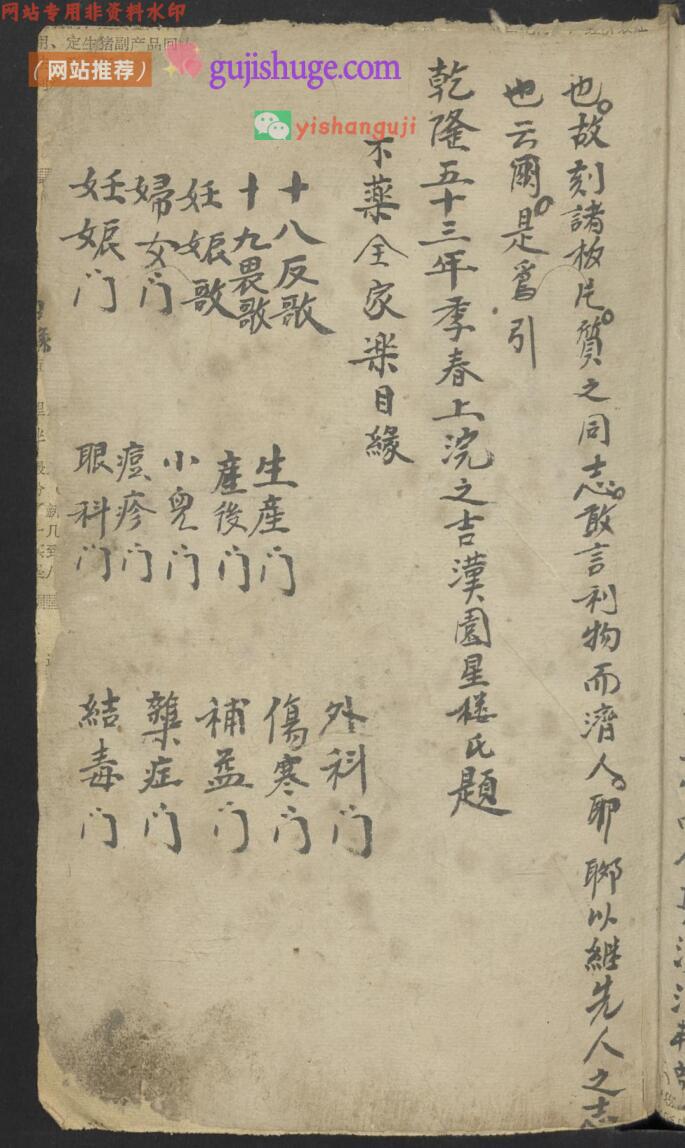 网站专用非资料水印
用、定生猪副产品回
(网站推荐)
gujishuge.com
yishanguji
也。故刻諸板片。質之同志。敢言利物而濟人。耶聊以繼先人之志
也云爾。是爲引
乾隆五十三年季春上浣之吉漢園星樓氏題
不藥全家楽目緣
十八反歌
十九畏歌
妊娠歌
婦女门
妊娠门
生產门
產後门
小兒门
痘疹门
眼科门
外科门
傷寒门
補益门
雜症门
結毒门